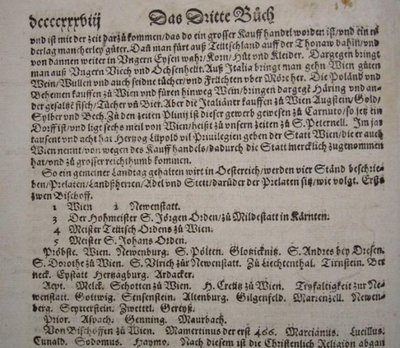 dccccxxxviij Das Dritte Bůch
und ist mit der zeit darzů kommen/das do ein grosser Kauff handel worden ist/und ein ni
derlag mancherley gůter. Dañ man fürt auß Teütschland auff der Thonaw dahin/und
von dannen weiter in Ungern Eysen wahr/Korn/Hůt und Kleider. Dargegen bringt
man auß Ungern Viech und Ochsenheüt. Auß Italia bringt man gehn Wien gůten
Wein/Wullen und auch seiden tücher und Früchten uber Mörher. Die Poland und
Behemen kauffen zů Wien und füren hinweg Wein/bringen dargegẽ Häring und an-
der gesaltzẽ fisch/Tücher uñ Bier. Aber die Italiänr kauffen zů Wien Augstein/Gold/
Sylber und Bech. Zů den zeiten Plinij ist dieser gewerb gewesen zů Carnuto/so jetz ein
Dorff ist/und ligt sechs meil von Wien/heißt zů unsern zeiten zů S. Peternell. Im jar
tausent und acht hat Hertzog Lüpolt vil Privilegien geben der Statt Wien/die er auch
Wien nennt/von wegen des Kauff handels/dadurch die Statt mercklich zůgenommen
hat/und zů grosser reichthumb kommen.
So ein gemeiner Landtag gehalten wirt in Oesterreich/werden vier Ständ beschrie-
ben/Prelaten/Landßherren/Adel und Stett/darüder der Prelaten sind/wie volgt. Erst
zwen Bischoff.
1 Wien 2 Newenstatt.
3 Der Hohmeister S. Jörgen Orden/zů Mildestatt in Kärnten.
4 Meister Teütsch Ordens zů Wien.
5 Meister S. Johans Orden.
Pröbste. Wien. Newenburg. S. Pölten. Gloßicknitz. S. Andres bey Dresen.
S. Dorothe zů Wien. S. Ulrich zů Newenstatt. Zů Kiechtenthal. Tirnstein. Ber
neck. Eystatt Hertzagburg. Ardacker.
Aept. Melck. Schotten zů Wien. H. Creütz zů Wien. Tryfaltigkeit zur Ne-
wenstatt. Gottwig. Sensenstein. Altenburg. Gilgenfeld. Marienzell. Newen-
berg. Seyterstein. Zwettel. Gereyß.
Prior. Aspach. Genning. Maurbach.
Von Bischoffen zů Wien. Mamertinus der erst 466. Marcianus. Lucillus.
Cunald. Sodomus. Haymo. Nach diesem ist die Christenlich Religion abgan